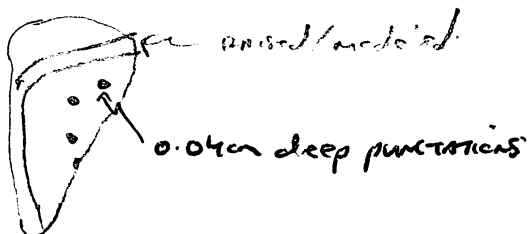 raised/modeled.
0.04cm deep punctations